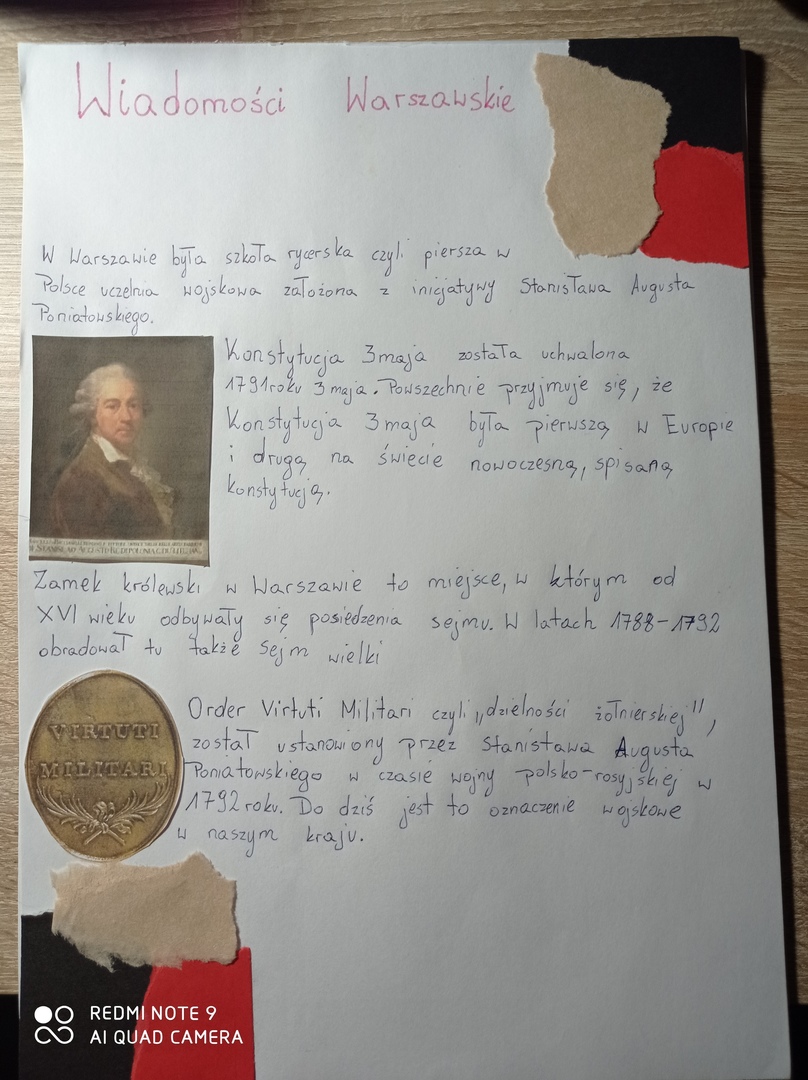 Wiadomości Warszawskie
W Warszawie była szkoła rycerska czyli piersza w
Polsce uczelnia wojskowa założona z inicjatywy Stanisława Augusta
Poniatowskiego.
Konstytucja 3 maja została uchwalona
1791 roku 3 maja. Powszechnie przyjmuje się, że
Konstytucja 3 maja była pierwszą w Europie
i drugą na świecie nowoczesną, spisaną
konstytucją.
Zamek królewski w Warszawie to miejsce, w którym od
XVI wieku odbywały się posiedzenia sejmu. W latach 1788-1792
obradował tu także Sejm wielki
VIRTUTI
MILITARI
Order Virtuti Militari czyli „dzielności żołnierskiej",
został ustanowiony przez Stanisława Augusta
Poniatowskiego w czasie wojny polsko-rosyjskiej w
1792 roku. Do dziś jest to oznaczenie wojskowe
w naszym kraju.
REDMI NOTE 9
AI QUAD CAMERA